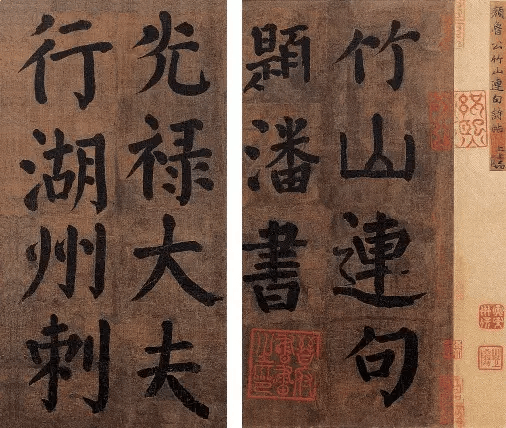 顏魯公竹山連句詩帖
竹山連句
題潘書
光祿大夫
行湖州刺